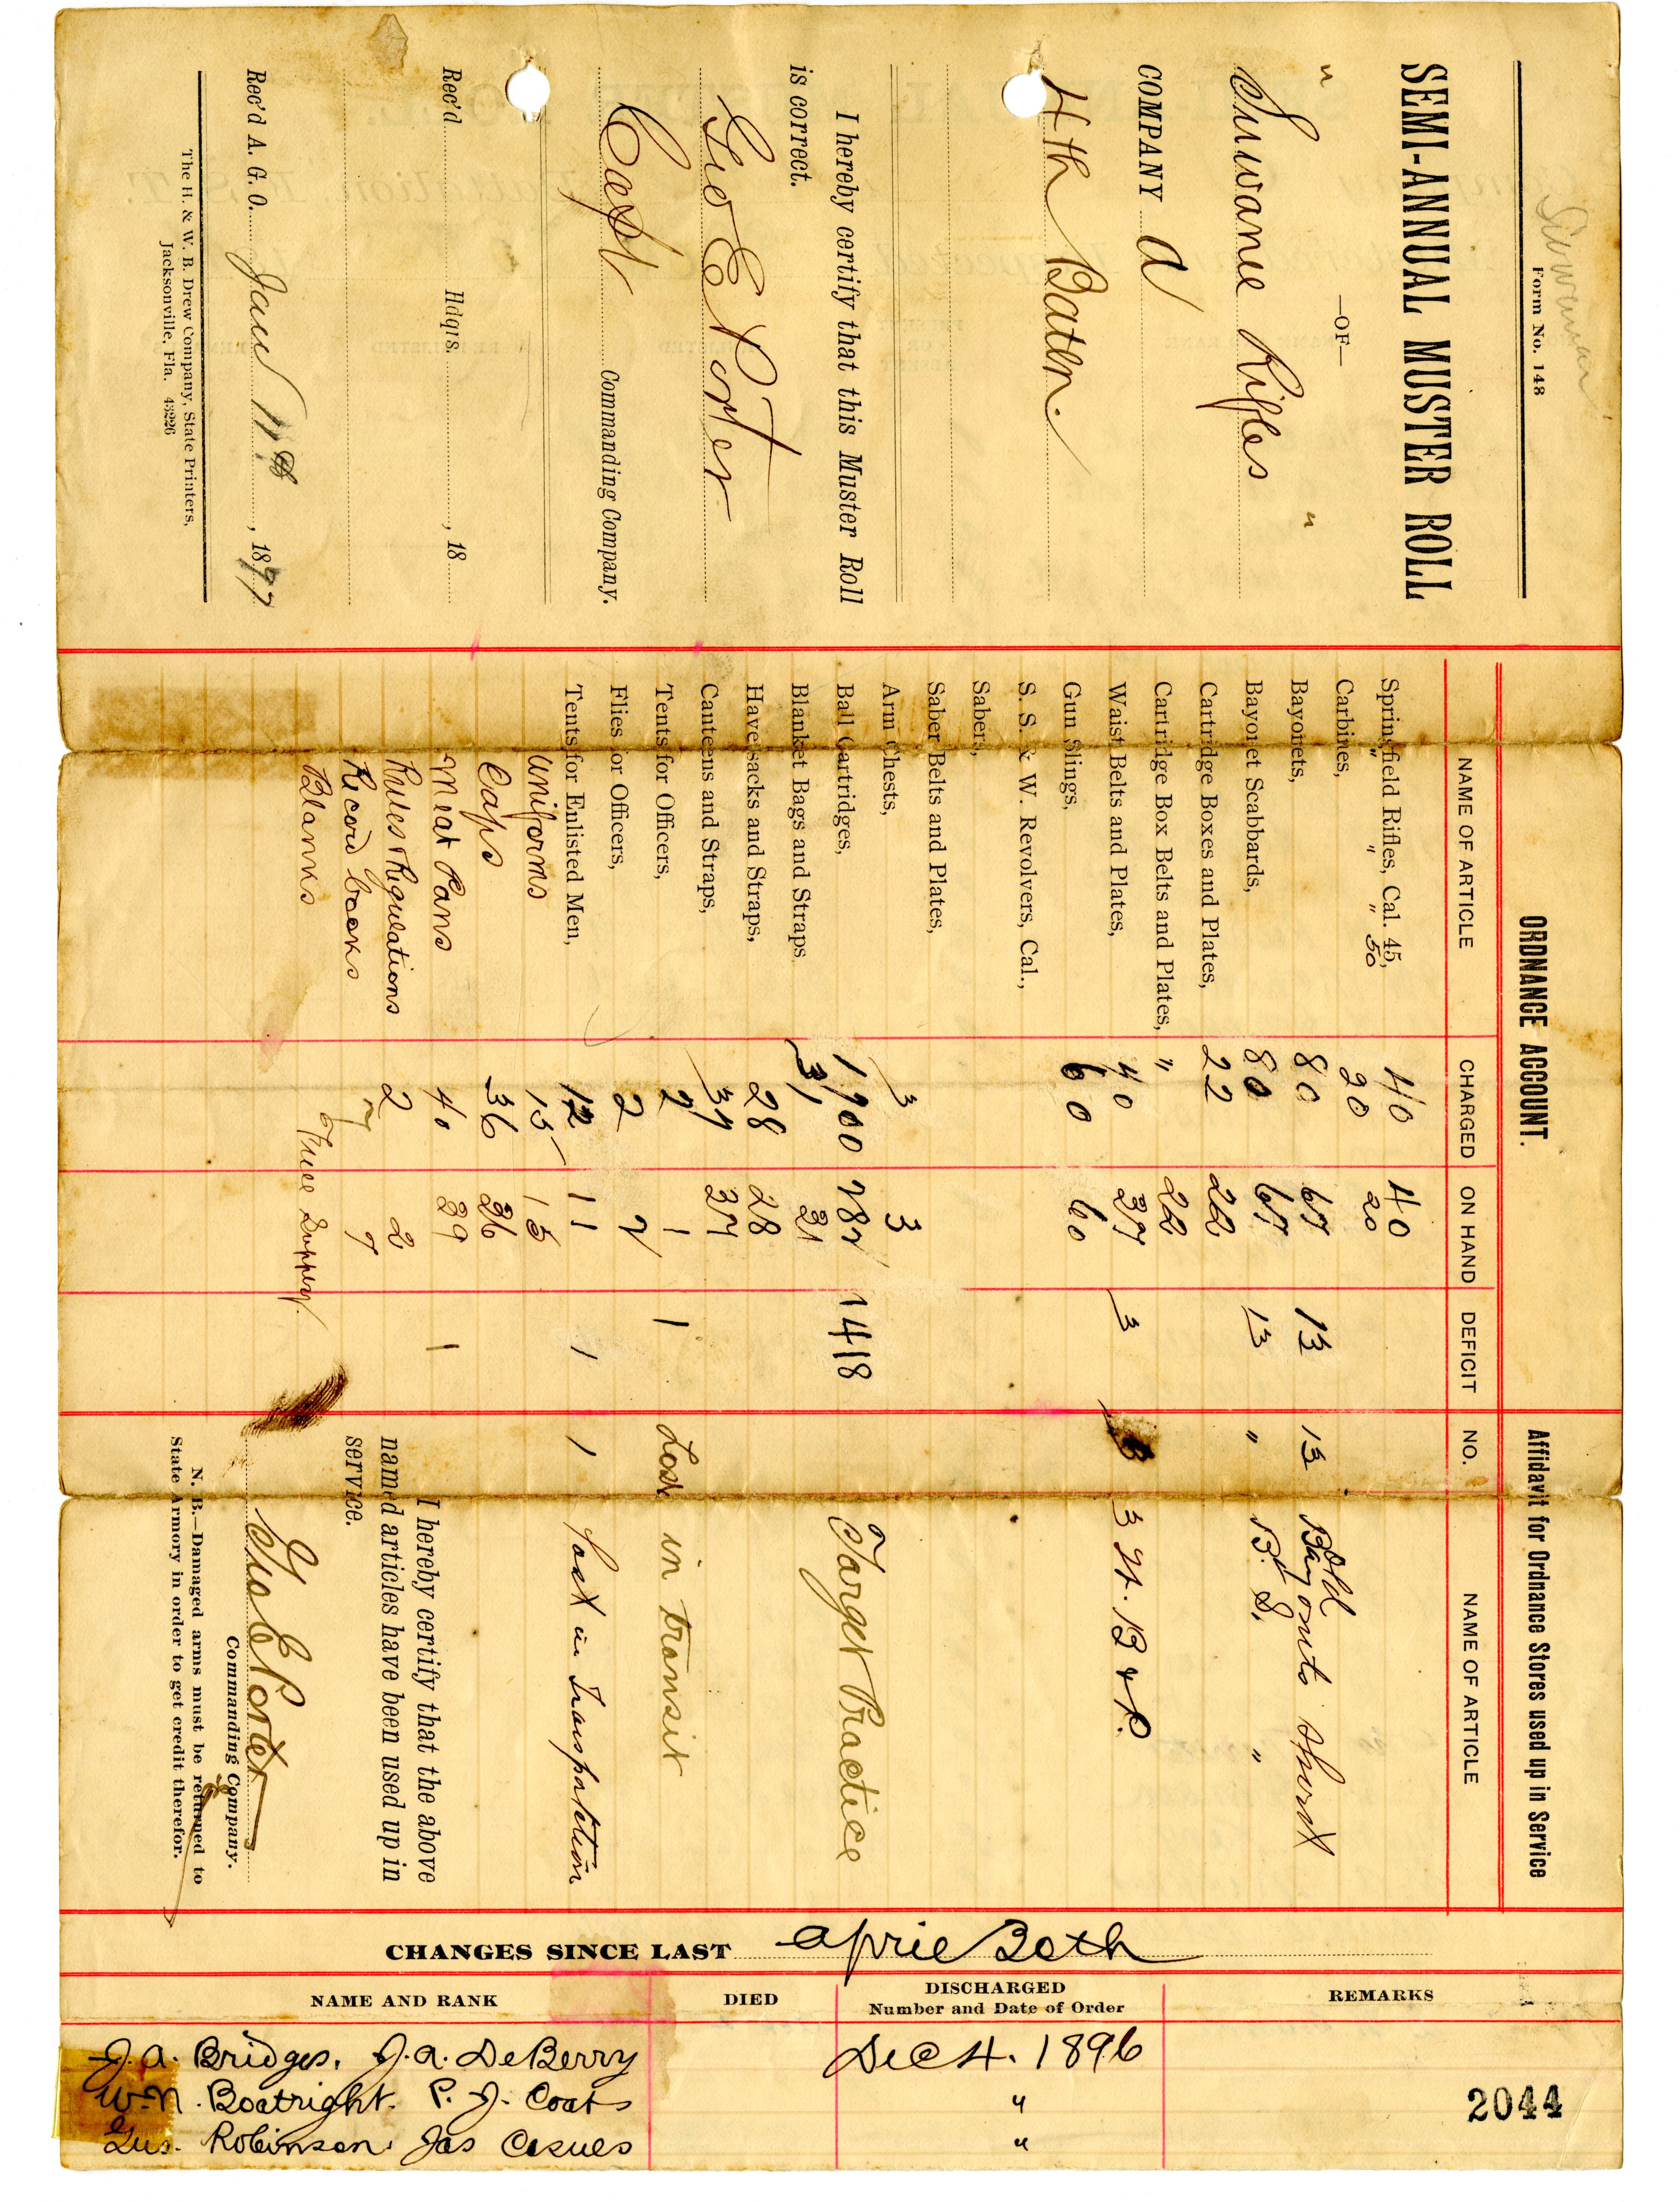 Suwannee
Form No. 148
SEMI-ANNUAL MUSTER ROLL
—OF—
" Suwanee Rifles "
COMPANY A
4th Batln.
I hereby certify that this Muster Roll
is correct.
Geo E Porter
Capt Commanding Company.
Rec'd Hdqrs. , 18
Rec'd A. G. O. Jany 11th , 1897
The H. & W. B. Drew Company, State Printers,
Jacksonville, Fla. 43226
ORDNANCE ACCOUNT.
NAME OF ARTICLE CHARGED ON HAND DEFICIT
Springfield Rifles, Cal. 45, 40 40
" " " 50 20 20
Carbines,
Bayonets, 80 67 13
Bayonet Scabbards, 80 67 13
Cartridge Boxes and Plates, 22 22
Cartridge Box Belts and Plates, " 22
Waist Belts and Plates, 40 37 3
Gun Slings, 60 60
S. S. & W. Revolvers, Cal.,
Sabers,
Saber Belts and Plates,
Arm Chests, 3 3
Ball Cartridges, 1700 282 1418
Blanket Bags and Straps 31 31
Haversacks and Straps, 28 28
Canteens and Straps, 37 37
Tents for Officers, 2 1 1
Flies for Officers, 2 2
Tents for Enlisted Men, 12 11 1
Uniforms 15 15
Caps 36 36
Meat Pans 40 39 1
Rules & Regulations 2 2
Record books 7 7
Blanks Free Supply.
Affidavit for Ordnance Stores used up in Service
NO. NAME OF ARTICLE
13 Old Bayonets Short
" B. S. "
3 3 Wt. B & P.
Target Practice
Lost in transit
1 Lost in Transportation
I hereby certify that the above
named articles have been used up in
service.
Geo E Porter
Commanding Company.
N. B.—Damaged arms must be returned to
State Armory in order to get credit therefor.
CHANGES SINCE LAST April 30th
NAME AND RANK DIED DISCHARGED REMARKS
Number and Date of Order
J. A. Bridges, J. A. DeBerry Dec 4. 1896
W. N. Boatright. P. J. Coats "
Gus. Robinson Jas "
2044